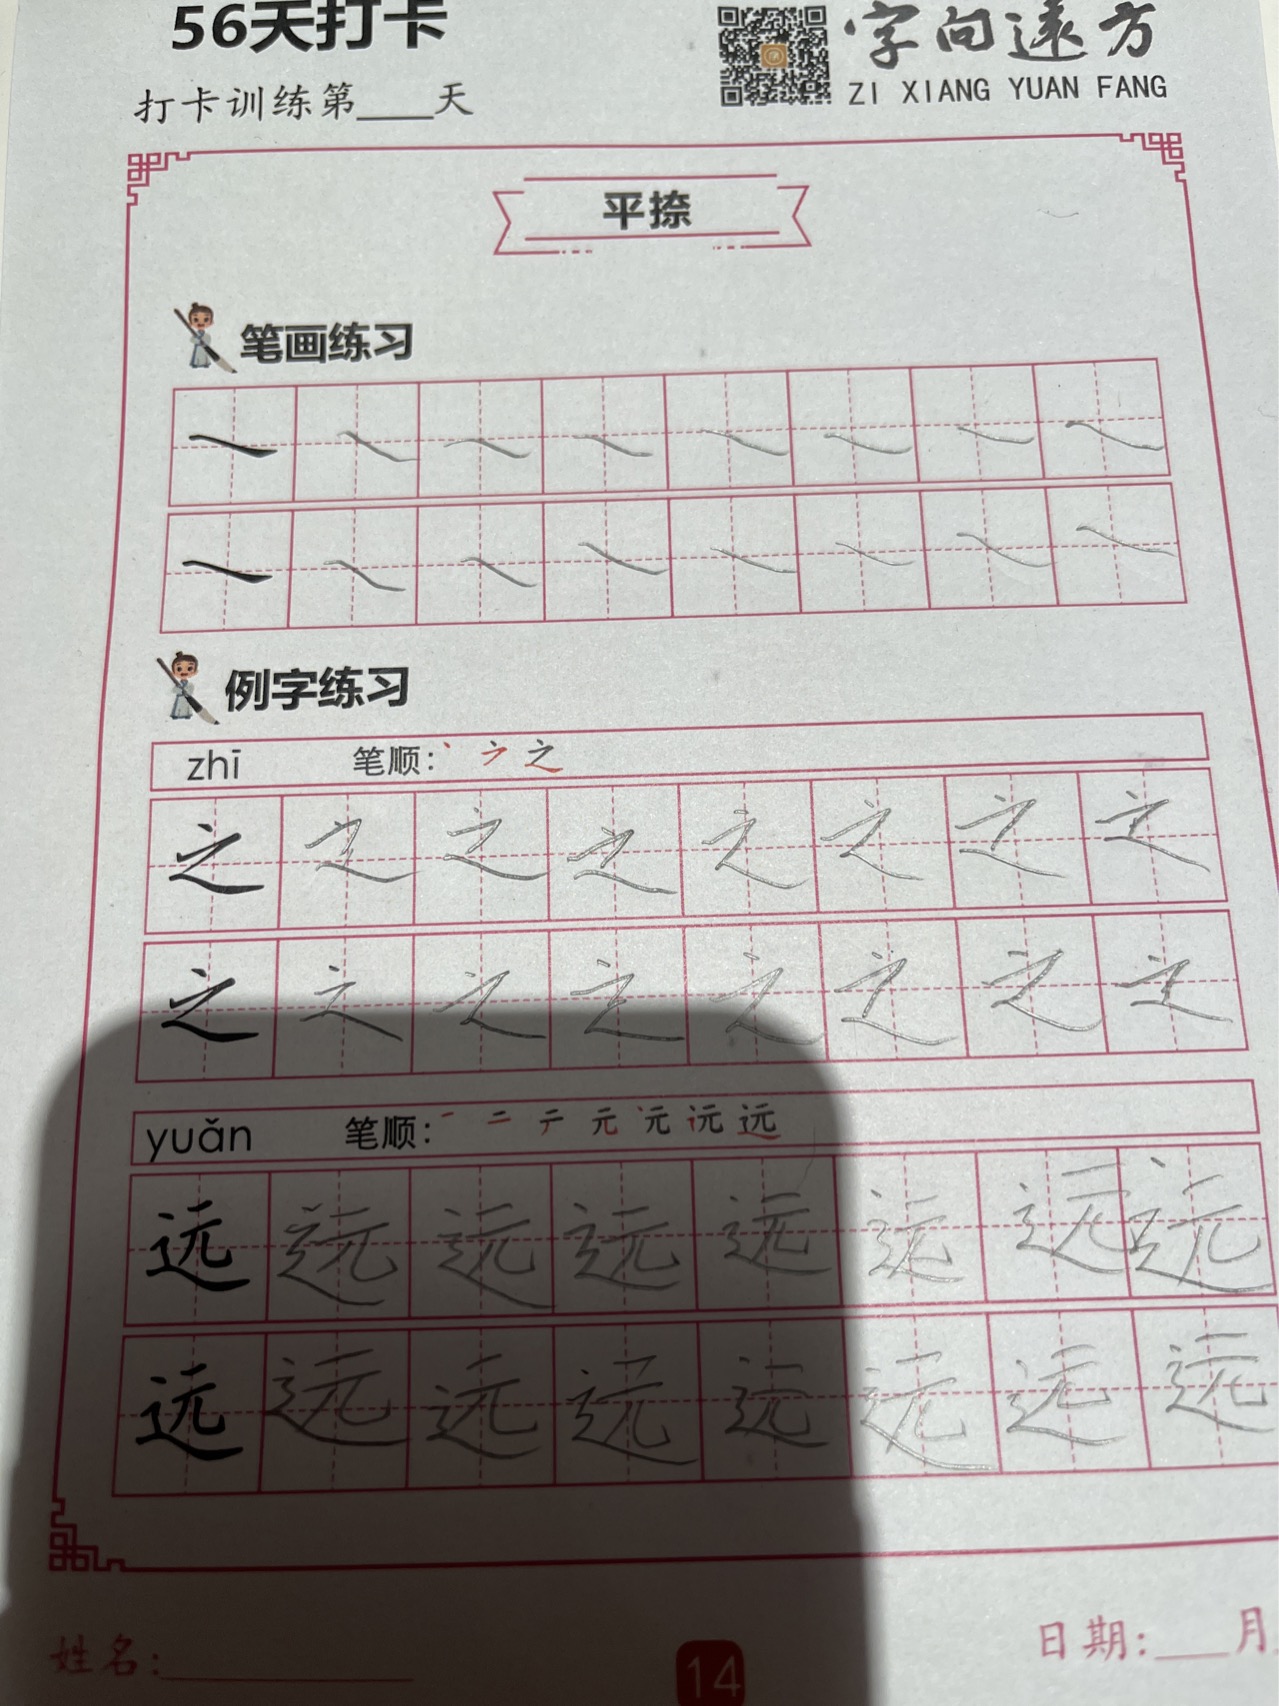 56天打卡
字向远方
打卡训练第____天
ZI XIANG YUAN FANG
平捺
笔画练习
例字练习
zhī 笔顺：丶 之
之 之 之 之 之 之 之 之
之 之 之 之 之 之 之 之
yuǎn 笔顺：一 二 テ 元 远
远 远 远 远 远 远 远 远
远 远 远 远 远 远 远 远
姓名：__________ 14 日期：___月